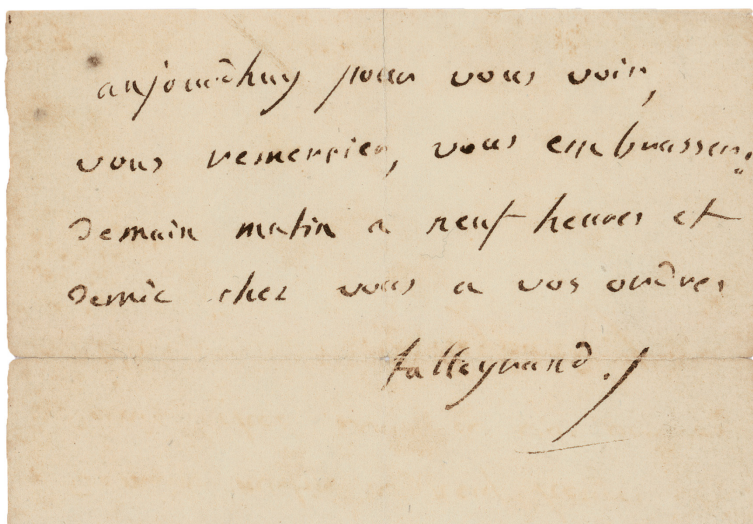 aujourdhuy pour vous voir,
vous remercier, vous embrasser:
demain matin a neuf heures et
demie chez vous a vos ordres
talleyrand.